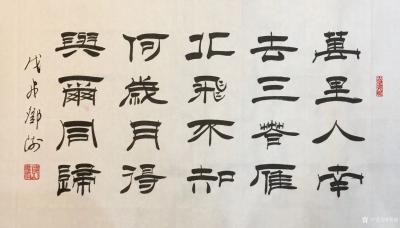 萬里人南
去三春雁
北飛不知
何歲月得
與爾同歸
戊戌鄧